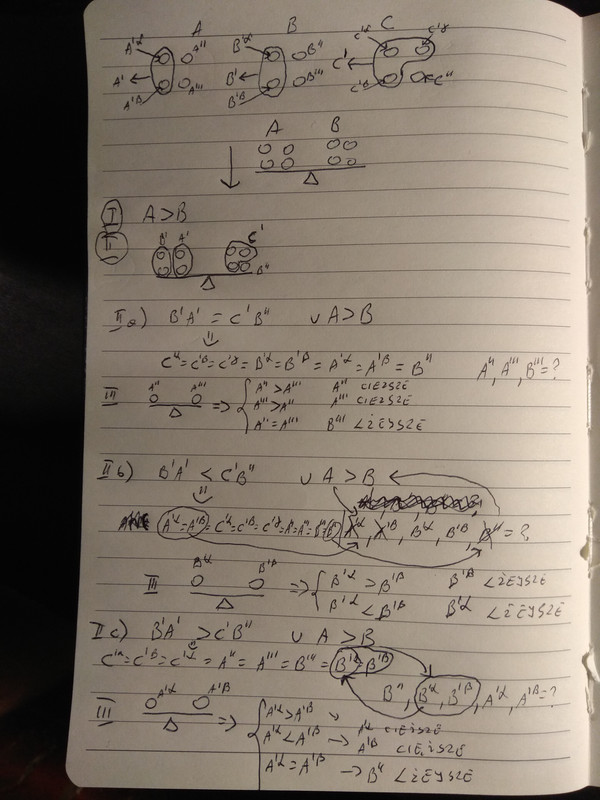 A B C
A'α A'' B'α B'' C'α C'γ
A' B' C'
A'β A''' B'β B''' C'β C''
A B
Ⅰ A>B
Ⅱ B' A' C'
B''
Ⅱa) B'A' = C'B'' ∪ A>B
⇓
C'α=C'β=C'γ=B'α=B'β=A'α=A'β=B'' A'', A''', B'''=?
Ⅲ A'' A''' => { A''>A''' A'' CIĘŻSZE
A'''>A'' A''' CIĘŻSZE
A''=A''' B''' LŻEJSZE
Ⅱb) B'A' < C'B'' ∪ A>B
⇓
A'α=A'β=C'α=C'β=C'γ=A''=A''' , B'α, B'β, =?
Ⅲ B'α B'β => { B'α>B'β B'β LŻEJSZE
B'α<B'β B'α LŻEJSZE
Ⅱc) B'A' > C'B'' ∪ A>B
⇓
C'α=C'β=C'γ=A''=A'''=B'''=B'α=B'β
B'', B'α, B'β, A'α, A'β=?
Ⅲ A'α A'β => { A'α>A'β → A'α CIĘŻSZE
A'α<A'β → A'β CIĘŻSZE
A'α=A'β → B'' LŻEJSZE